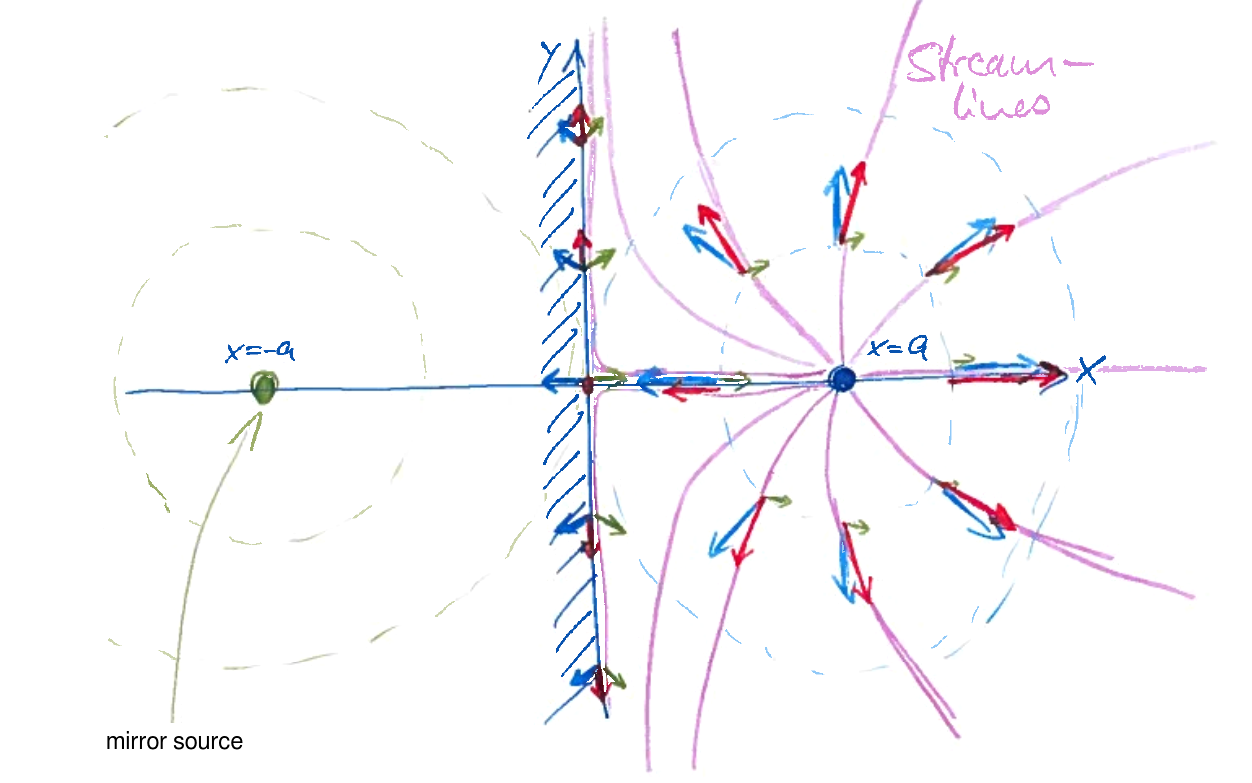 Y
Stream-
lines
x=-a
x=a
X
mirror source